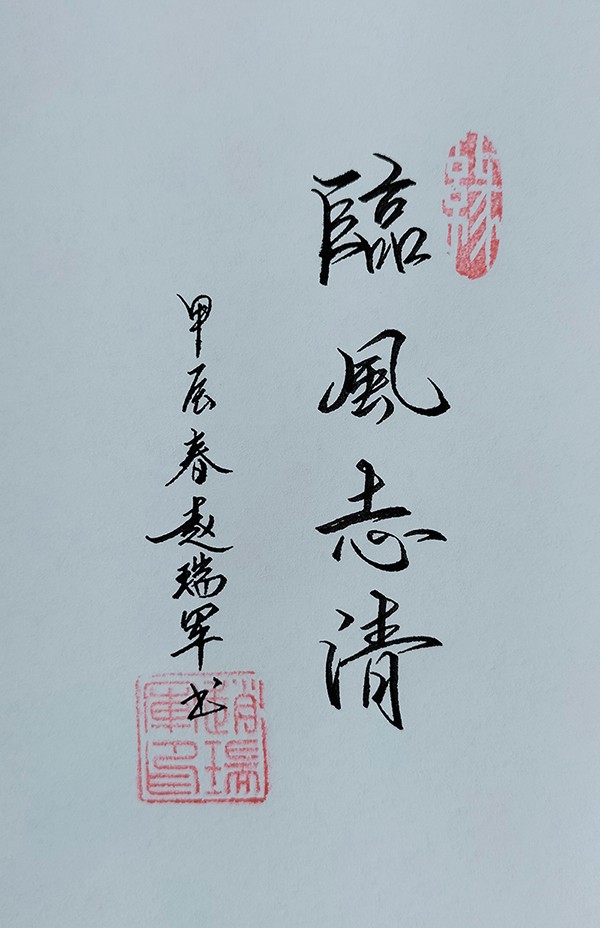 臨風志清
甲辰春赵瑞军书
趙瑞軍印